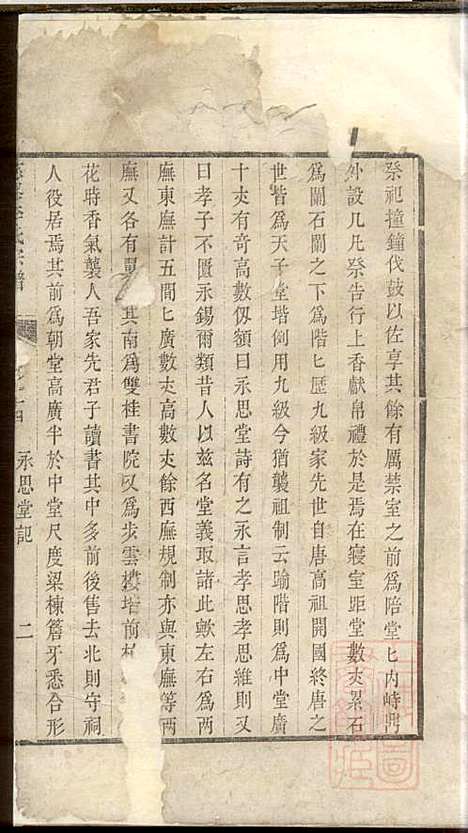 祭祀撞鐘伐鼓以佐享其餘有厲禁室之前爲陪堂匕内峙興
外設几凡祭告行上香獻帛禮於是焉在寢室距堂數丈累石
爲闌石闌之下爲階匕歷九級家先世自唐高祖開國終唐之
世皆爲天子堂堦例用九級今猶襲祖制云踰階則爲中堂廣
十丈有奇高數仭額曰永思堂詩有之永言孝思孝思維則又
曰孝子不匱永錫爾類昔人以兹名堂義取諸此歟左右爲兩
廡東廡計五間匕廣數丈高數丈餘西廡規制亦與東廡等兩
廡又各有 其南爲雙桂書院又爲步雲樓堦前
花時香氣襲人吾家先君子讀書其中多前後售去北則守祠
人役居焉其前爲朝堂高廣半於中堂尺度梁棟簷牙悉合形
氏宗譜
永思堂記
二